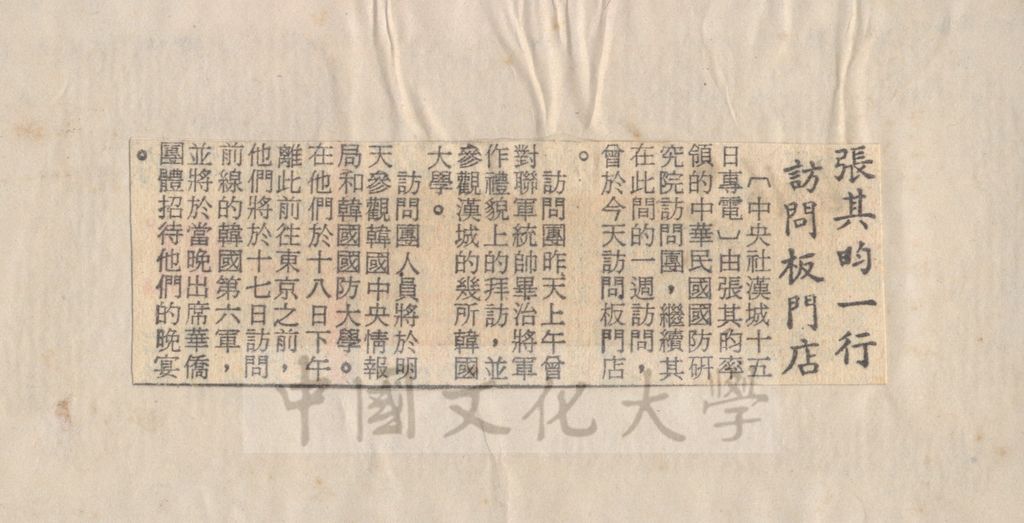 張其昀一行
訪問板門店
〔中央社漢城十五
日專電〕由張其昀率
領的中華民國國防研
究院訪問團，繼續其
在此間的一週訪問，
曾於今天訪問板門店
。
訪問團昨天上午曾
對聯軍統帥畢治將軍
作禮貌上的拜訪，並
參觀漢城的幾所韓國
大學。
訪問團人員將於明
天參觀韓國中央情報
局和韓國國防大學。
在他們於十八日下午
離此前往東京之前，
他們將於十七日訪問
前線的韓國第六軍，
並將於當晚出席華僑
團體招待他們的晚宴
。
中國文化大學